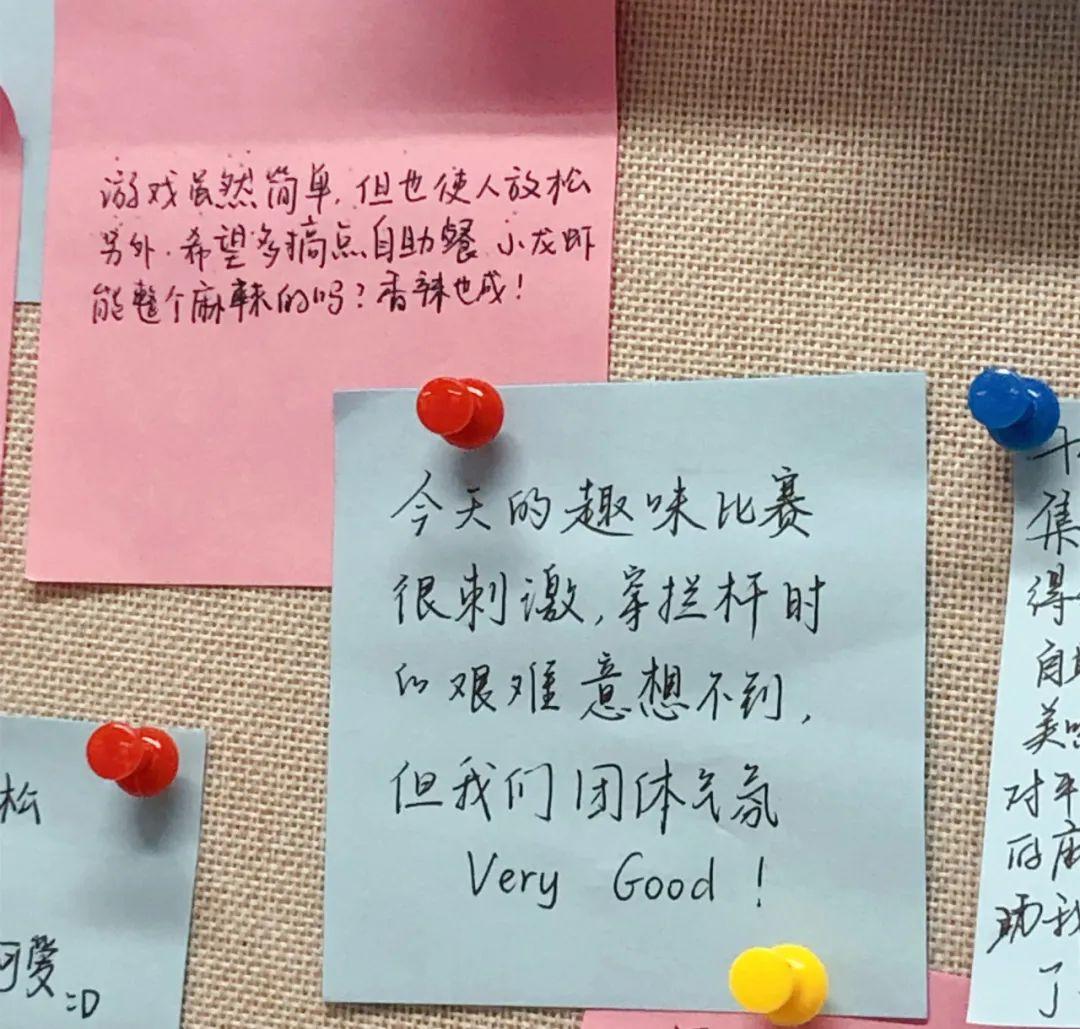 游戏虽然简单,但也使人放松
另外.希望多搞点自助餐.小龙虾
能整个麻辣的吗?香辣也成!
今天的趣味比赛
很刺激,穿拦杆时
的艰难意想不到,
但我们团体气氛
Very Good!
松
可爱:D
集
得
自
美味
对平
的麻
助我
了